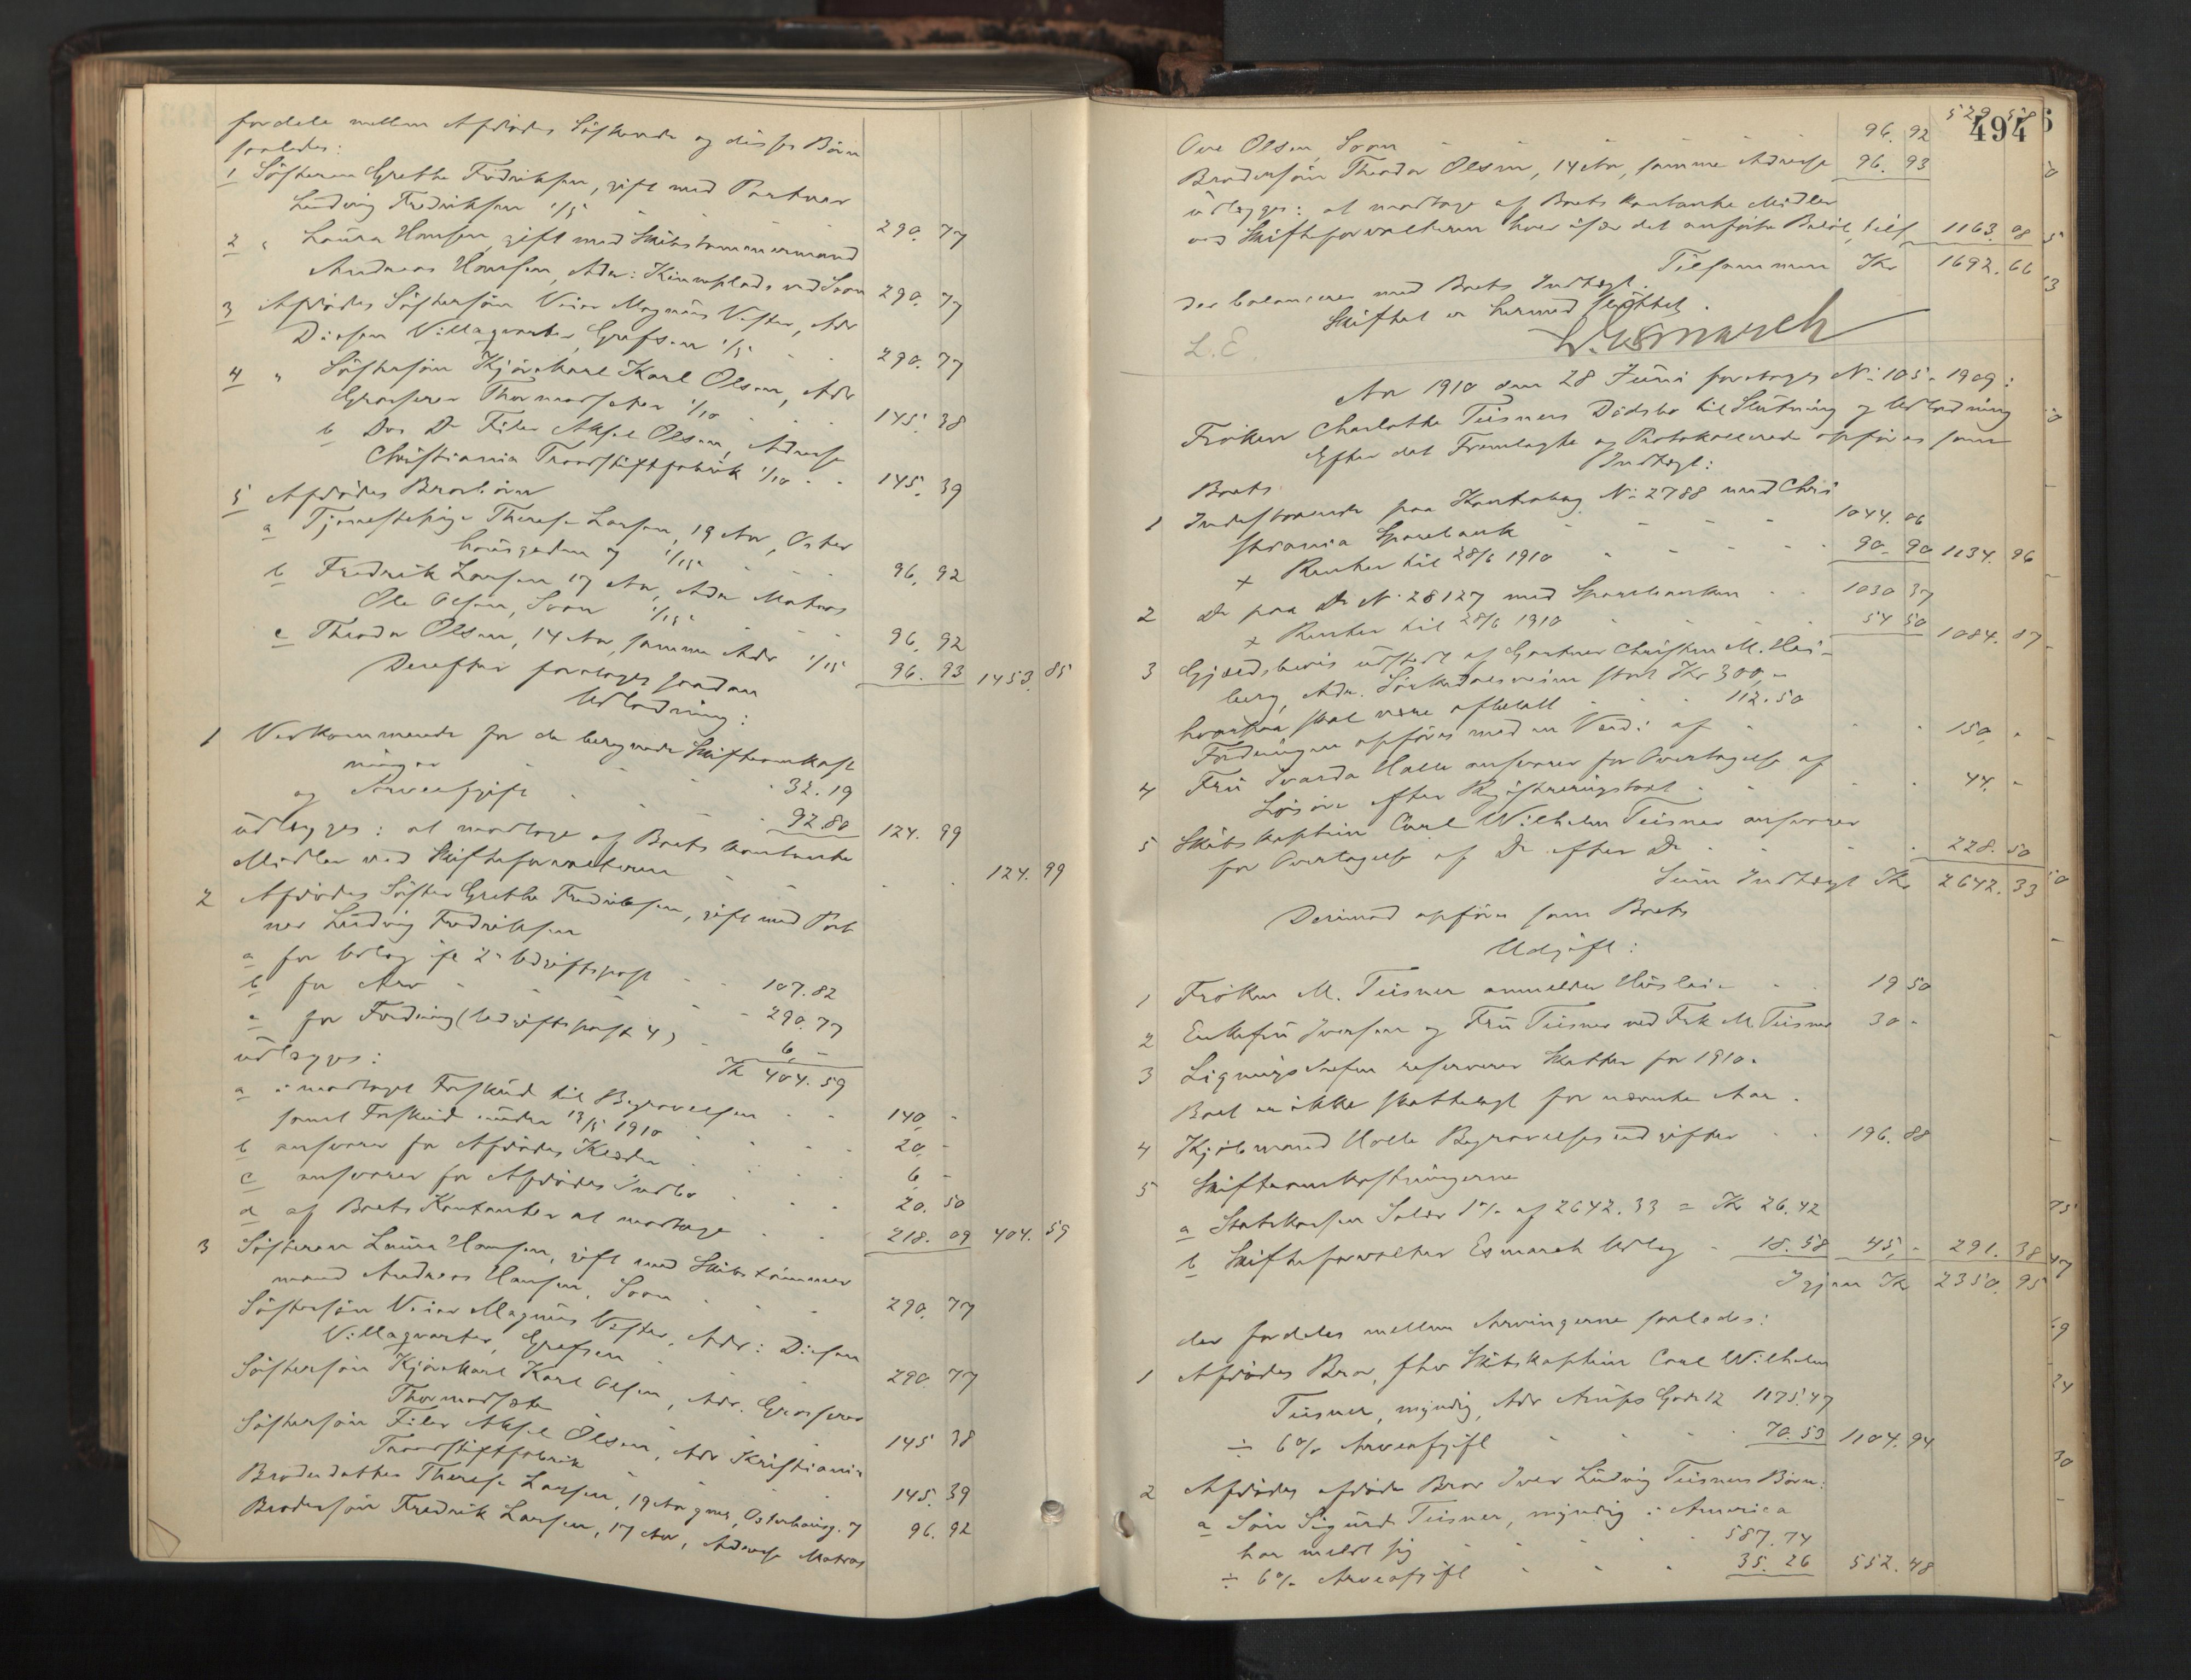 fordele mellem Afdødes Söskende og disses Børn
saaledes:
1 Söstern Grethe Fredriksen, gift med Portner
Ludvig Fredriksen 1/5 290. 77
2 " Laura Hansen, gift med Skibstømmermand
Andreas Hansen, Adr: Svon 290. 77
3 Afdødes Söstersön Viar Magnus Vester, Adr
Disen Villaqvarter, Grefsen 1/5 290. 77
4 " Söstersön Kjörekarl Karl Olsen, Adr
Grosserer Thormodsæter 1/10 145. 38
b Dos Do Filer Aksel Olsen, Adresse
Christiania Traadstiftfabrik 1/10 145. 39
5 Afdødes Brorbörn
a Tjenestepige Therese Larsen, 19 Aar, Oster
hausgaden 7 1/15 96. 92
b Fredrik Larsen 17 Aar, Adr Matros
Ole Olsen, Svon 1/15 96. 92
c Theodor Olsen, 14 Aar, samme Adr 1/15 96. 93 1453. 85
Derefter foretoges saadan
Udlodning:
1 Vedkommende for de beregnede Skifteomkost
ninger 32.19
og Arveafgift 92.80 124. 99
udlægges: at modtage af Boets kontante
Midler ved Skifteforvalteren 124. 99
2 Afdødes Söster Grethe Fredriksen, gift med Port
ner Ludvig Fredriksen
a for Udlæg if 2den Udgiftspost 107.82
b for Arv 290.77
c for Fordring (Udgiftspost 4) 6,-
Kr 404.59
udlægges:
a i modtaget Forskud til Begravelsen 140,-
samt Forskud under 13/5 1910 20,-
b ansvarer for Afdødes Klæder 6,-
c ansvarer for Afdødes Indbo 20. 50
d af Boets Kontanter at modtage 218. 09 404. 59
3 Söstern Laura Hansen, gift med Skibstømmer
mand Andreas Hansen, Svon 290. 77
Söstersön Viar Magnus Vester, Adr: Disen
Villaqvarter, Grefsen 290. 77
Söstersön Kjörekarl Karl Olsen, Adr. Grosserer
Thormodsæter 145 38
Söstersön Filer Aksel Olsen, Adr Kristiania
Traadstiftfabrik 145. 39
Broderdatter Therese Larsen, 19 Aar gml, Osterhausg. 7 96. 92
Brodersön Fredrik Larsen, 17 Aar, Adresse Matros
494
529 58
Ove Olsen, Svon 96. 92
Brodersön Theodor Olsen, 14 Aar, samme Adresse 96. 93
udlægges: at modtage af Boets kontante Midler
ved Skifteforvalteren hver især det anførte Beløb, tils 1163. 08
Tilsammen Kr 1692. 66
der balancerer med Boets Indtægt.
Skiftet er hermed sluttet.
L.E. Esmarch
Aar 1910 den 28 Juni foretoges No 105 - 1909:
Fröken Charlotte Tiisners Dödsbo til Slutning og Udlodning
Efter det Fremlagte og Protokollerede opføres som
Boets Indtægt:
1 Indestaaende paa Kontrabog No 2788 med Chri
stiania Sparebank 1044. 06
+ Renter til 28/6 1910 90. 90 1134. 96
2 Do paa Do No 28127 med Sparebanken 1030 37
+ Renter til 28/6 1910 54 50 1084. 87
3 Gjældsbevis udstedt af Gartner Christen M. Hei-
berg, Adr. Sörkedalsveien stort Kr 300,-
hvorpaa skal være afbetalt 112.50
Fordringen opføres med en Værdi af 150, -
4 Fru Halle ansvarer for Overtagelse af
Lösöre efter Registreringstaxt 44, -
5 Skibskaptein Carl Wilhelm Tiisner ansvarer
for Overtagelse af Do efter Do 228. 50
Sum Indtægt Kr 2642. 33
Derimod opføres som Boets
Udgift:
1 Fröken M. Tiisner anmelder Husleie 19 50
2 Enkefru Iversen og Fru Tiisner ved Frk M. Tiisner 30 -
3 Ligningschefen reserverer Skatter for 1910.
Boet er ikke skattelagt for nævnte Aar.
4 Kjöbmand Halle Begravelsesudgifter 196. 88
5 Skifteomkostningerne
a Statskassen Salær 1% af 2642.33 = Kr 26.42
b Skifteforvalter Esmarch Udlæg 18.58 45,- 291. 38
Igjen Kr 2350. 95
der fordeles mellem Arvingerne saaledes:
1 Afdødes Bror, fhv Skibskaptein Carl Wilhelm
Tiisner, myndig, Adr Arups Gade 12 1175.47
÷ 6% Arveafgift 70.53 1104. 94
2 Afdødes afdøde Bror Iver Ludvig Tiisners Børn:
a Sön Sigurd Tiisner, myndig i America
har meldt sig 587. 74
÷ 6% Arveafgift 35. 26 552. 48